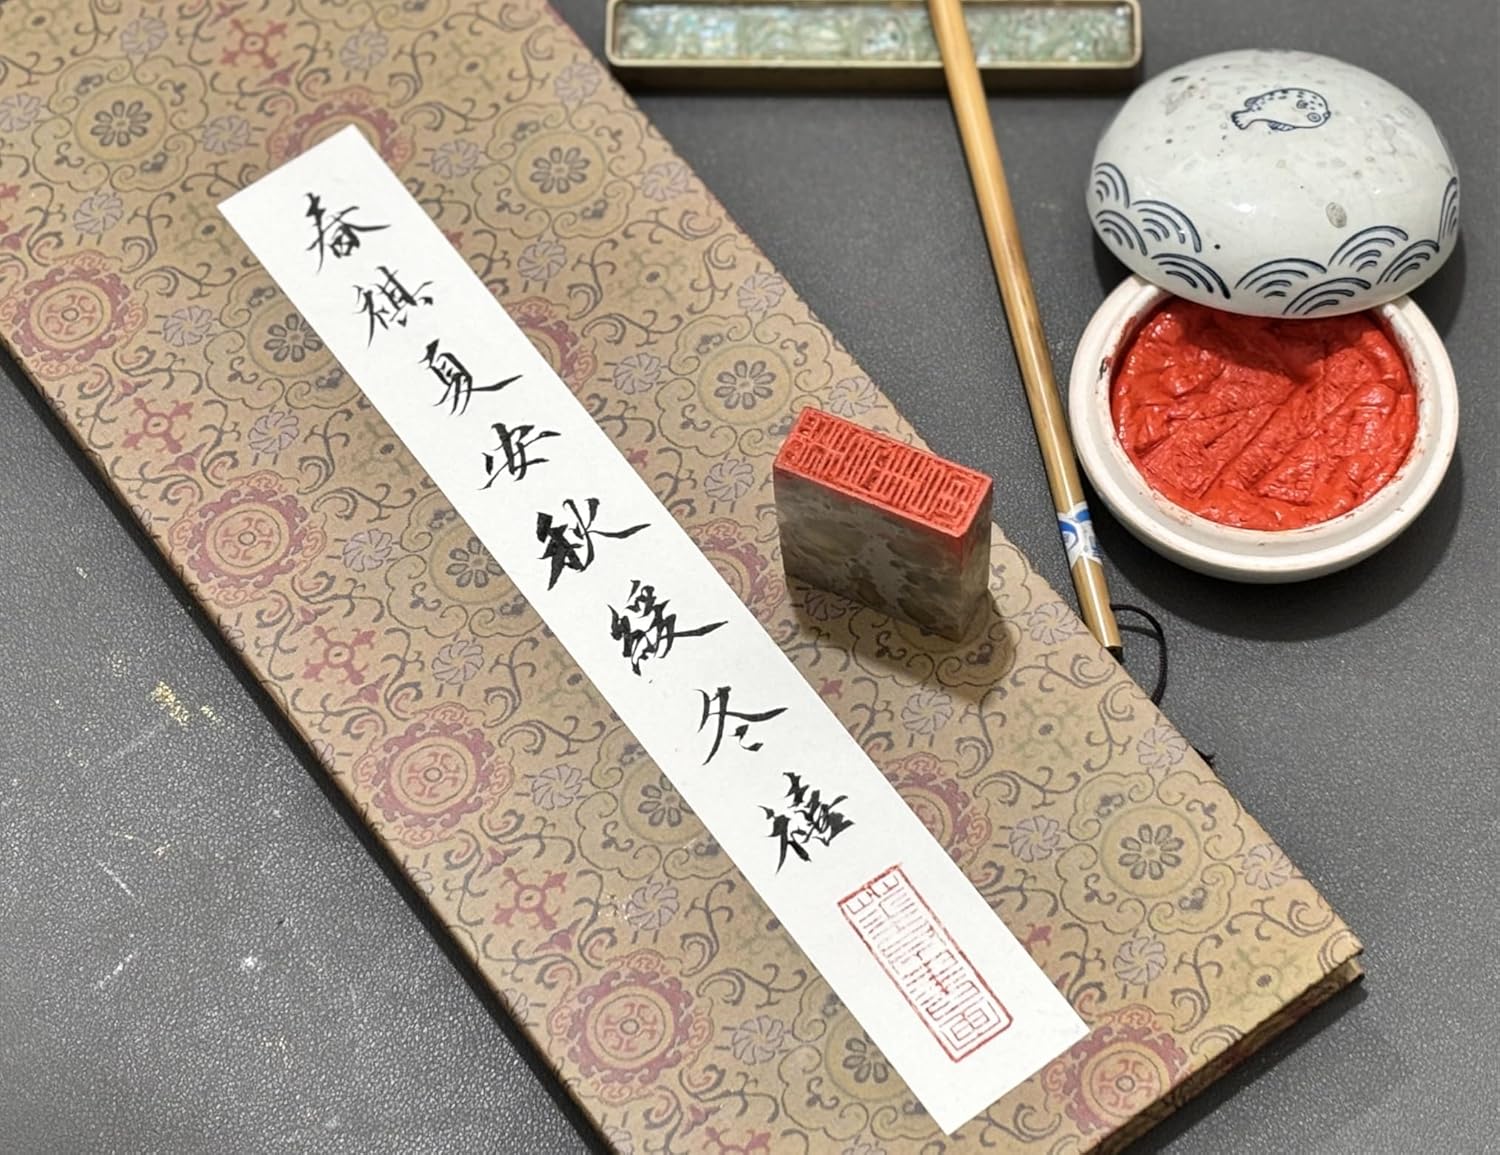 春祺夏安秋綏冬禧